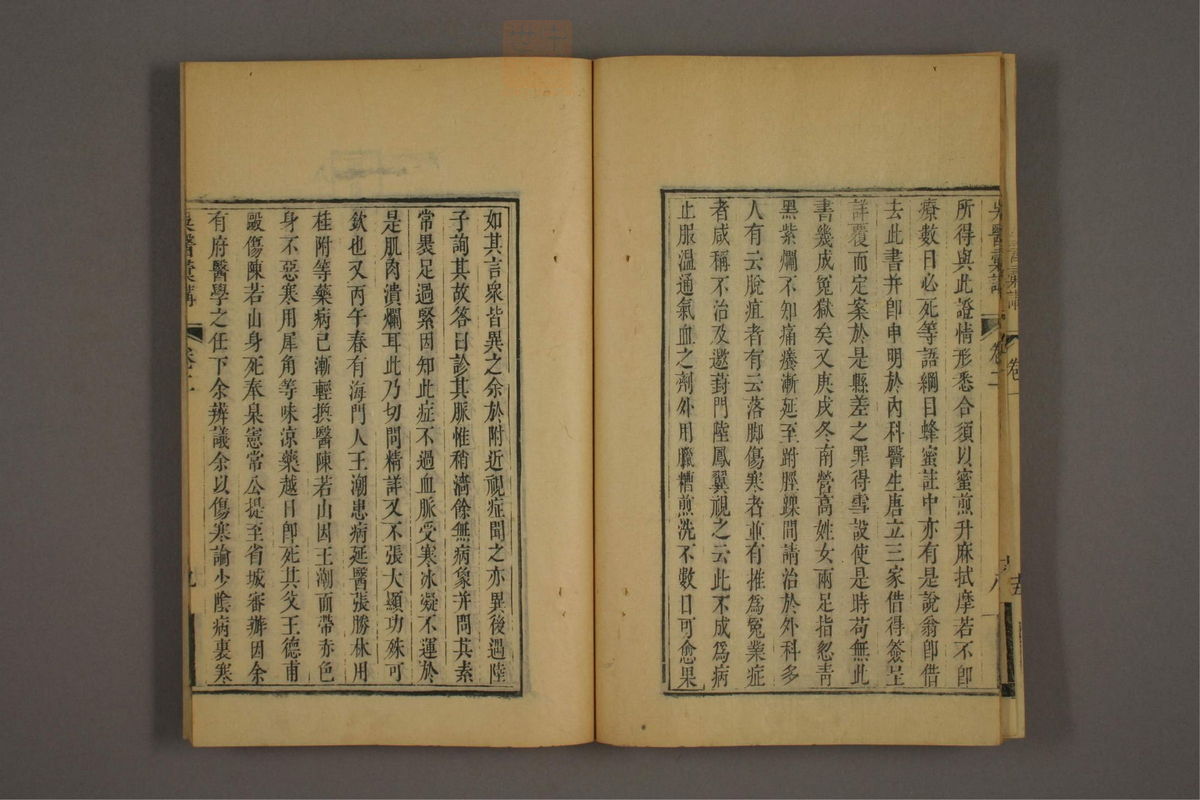 吳醫彙講 卷二 八
所得與此證情形悉合須以蜜煎升麻拭摩若不即
療數日必死等語綱目蜂蜜註中亦有是說翁即借
去此書并即申明於內科醫生唐立三家借得簽呈
詳覆而定案於是縣差之罪得雪設使是時苟無此
書幾成冤獄矣又庚戌冬南營高姓女兩足指忽青
黑紫爛不知痛癢漸延至跗脛踝間請治於外科多
人有云脫疽者有云落脚傷寒者並有推爲冤業症
者咸稱不治及邀葑門陸鳳翼視之云此不成爲病
止服溫通氣血之劑外用臘糟煎洗不數日可愈果
如其言衆皆異之余於附近視症聞之亦異後遇陸
子詢其故答曰診其脈惟稍濇餘無病象并問其素
常褁足過緊因知此症不過血脈受寒冰凝不運於
是肌肉潰爛耳此乃切問精詳又不張大顯功殊可
欽也又丙午春有海門人王潮患病延醫張勝林用
桂附等藥病已漸輕換醫陳若山因王潮面帶赤色
身不惡寒用犀角等味凉藥越日即死其父王德甫
毆傷陳若山身死奉臬憲常公提至省城審辦因余
有府醫學之任下余辨議余以傷寒論少陰病裏寒
吳醫彙講 卷二 九